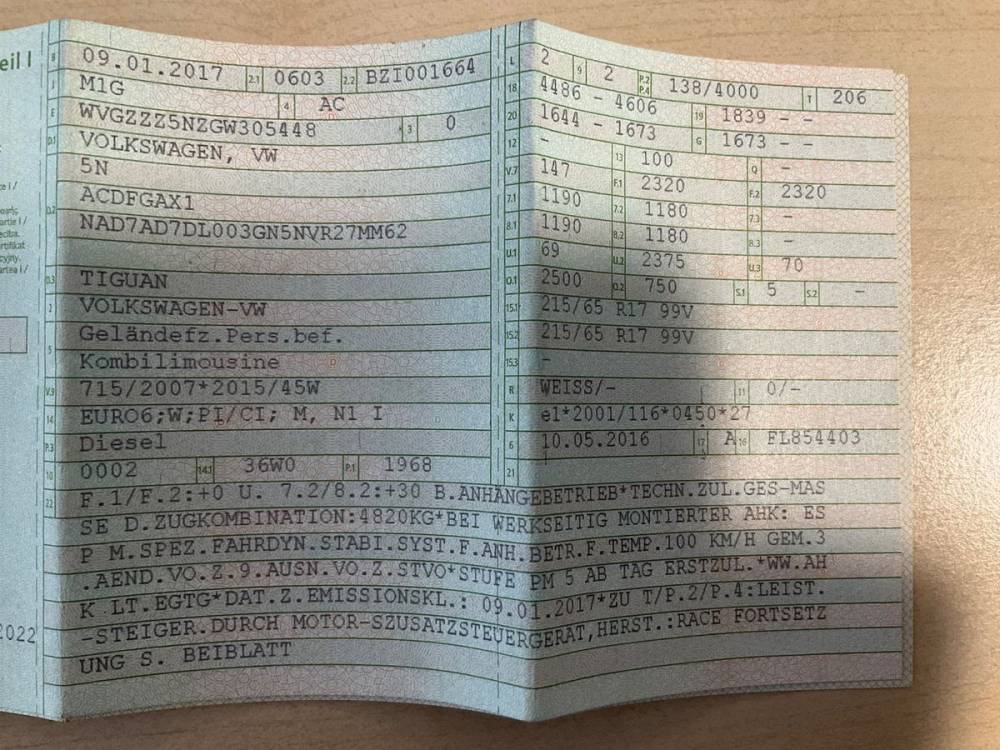 eil I
B 09.01.2017 2.1 0603 2.2 BZI001664
J M1G 4 AC
E WVGZZZ5NZGW305448 3 0
D.1 VOLKSWAGEN, VW
5N
D.2 ACDFGAX1
NAD7AD7DL003GN5NVR27MM62
D.3 TIGUAN
2 VOLKSWAGEN-VW
Geländefz.Pers.bef.
5 Kombilimousine
V.9 715/2007*2015/45W
14 EURO6;W;PI/CI; M, N1 I
P.3 Diesel
10 0002 14.1 36W0 P.1 1968
L 2 9 2 P.2 P.4 138/4000 T 206
18 4486 - 4606 19 1839 - -
20 1644 - 1673 G 1673 - -
12 - 13 100 Q -
V.7 147 F.1 2320 F.2 2320
7.1 1190 7.2 1180 7.3 -
8.1 1190 8.2 1180 8.3 -
U.1 69 U.2 2375 U.3 70
O.1 2500 O.2 750 S.1 5 S.2 -
15.1 215/65 R17 99V
15.2 215/65 R17 99V
15.3 -
R WEISS/- 11 0/-
K e1*2001/116*0450*27
6 10.05.2016 17 A 16 FL854403
21
22 F.1/F.2:+0 U. 7.2/8.2:+30 B.ANHÄNGEBETRIEB*TECHN.ZUL.GES-MAS
SE D.ZUGKOMBINATION:4820KG*BEI WERKSEITIG MONTIERTER AHK: ES
P M.SPEZ.FAHRDYN.STABI.SYST.F.ANH.BETR.F.TEMP.100 KM/H GEM.3
.AEND.VO.Z.9.AUSN.VO.Z.STVO*STUFE PM 5 AB TAG ERSTZUL.*WW.AH
K LT.EGTG*DAT.Z.EMISSIONSKL.: 09.01.2017*ZU T/P.2/P.4:LEIST.
-STEIGER.DURCH MOTOR-SZUSATZSTEUERGERÄT,HERST.:RACE FORTSETZ
UNG S. BEIBLATT
2022